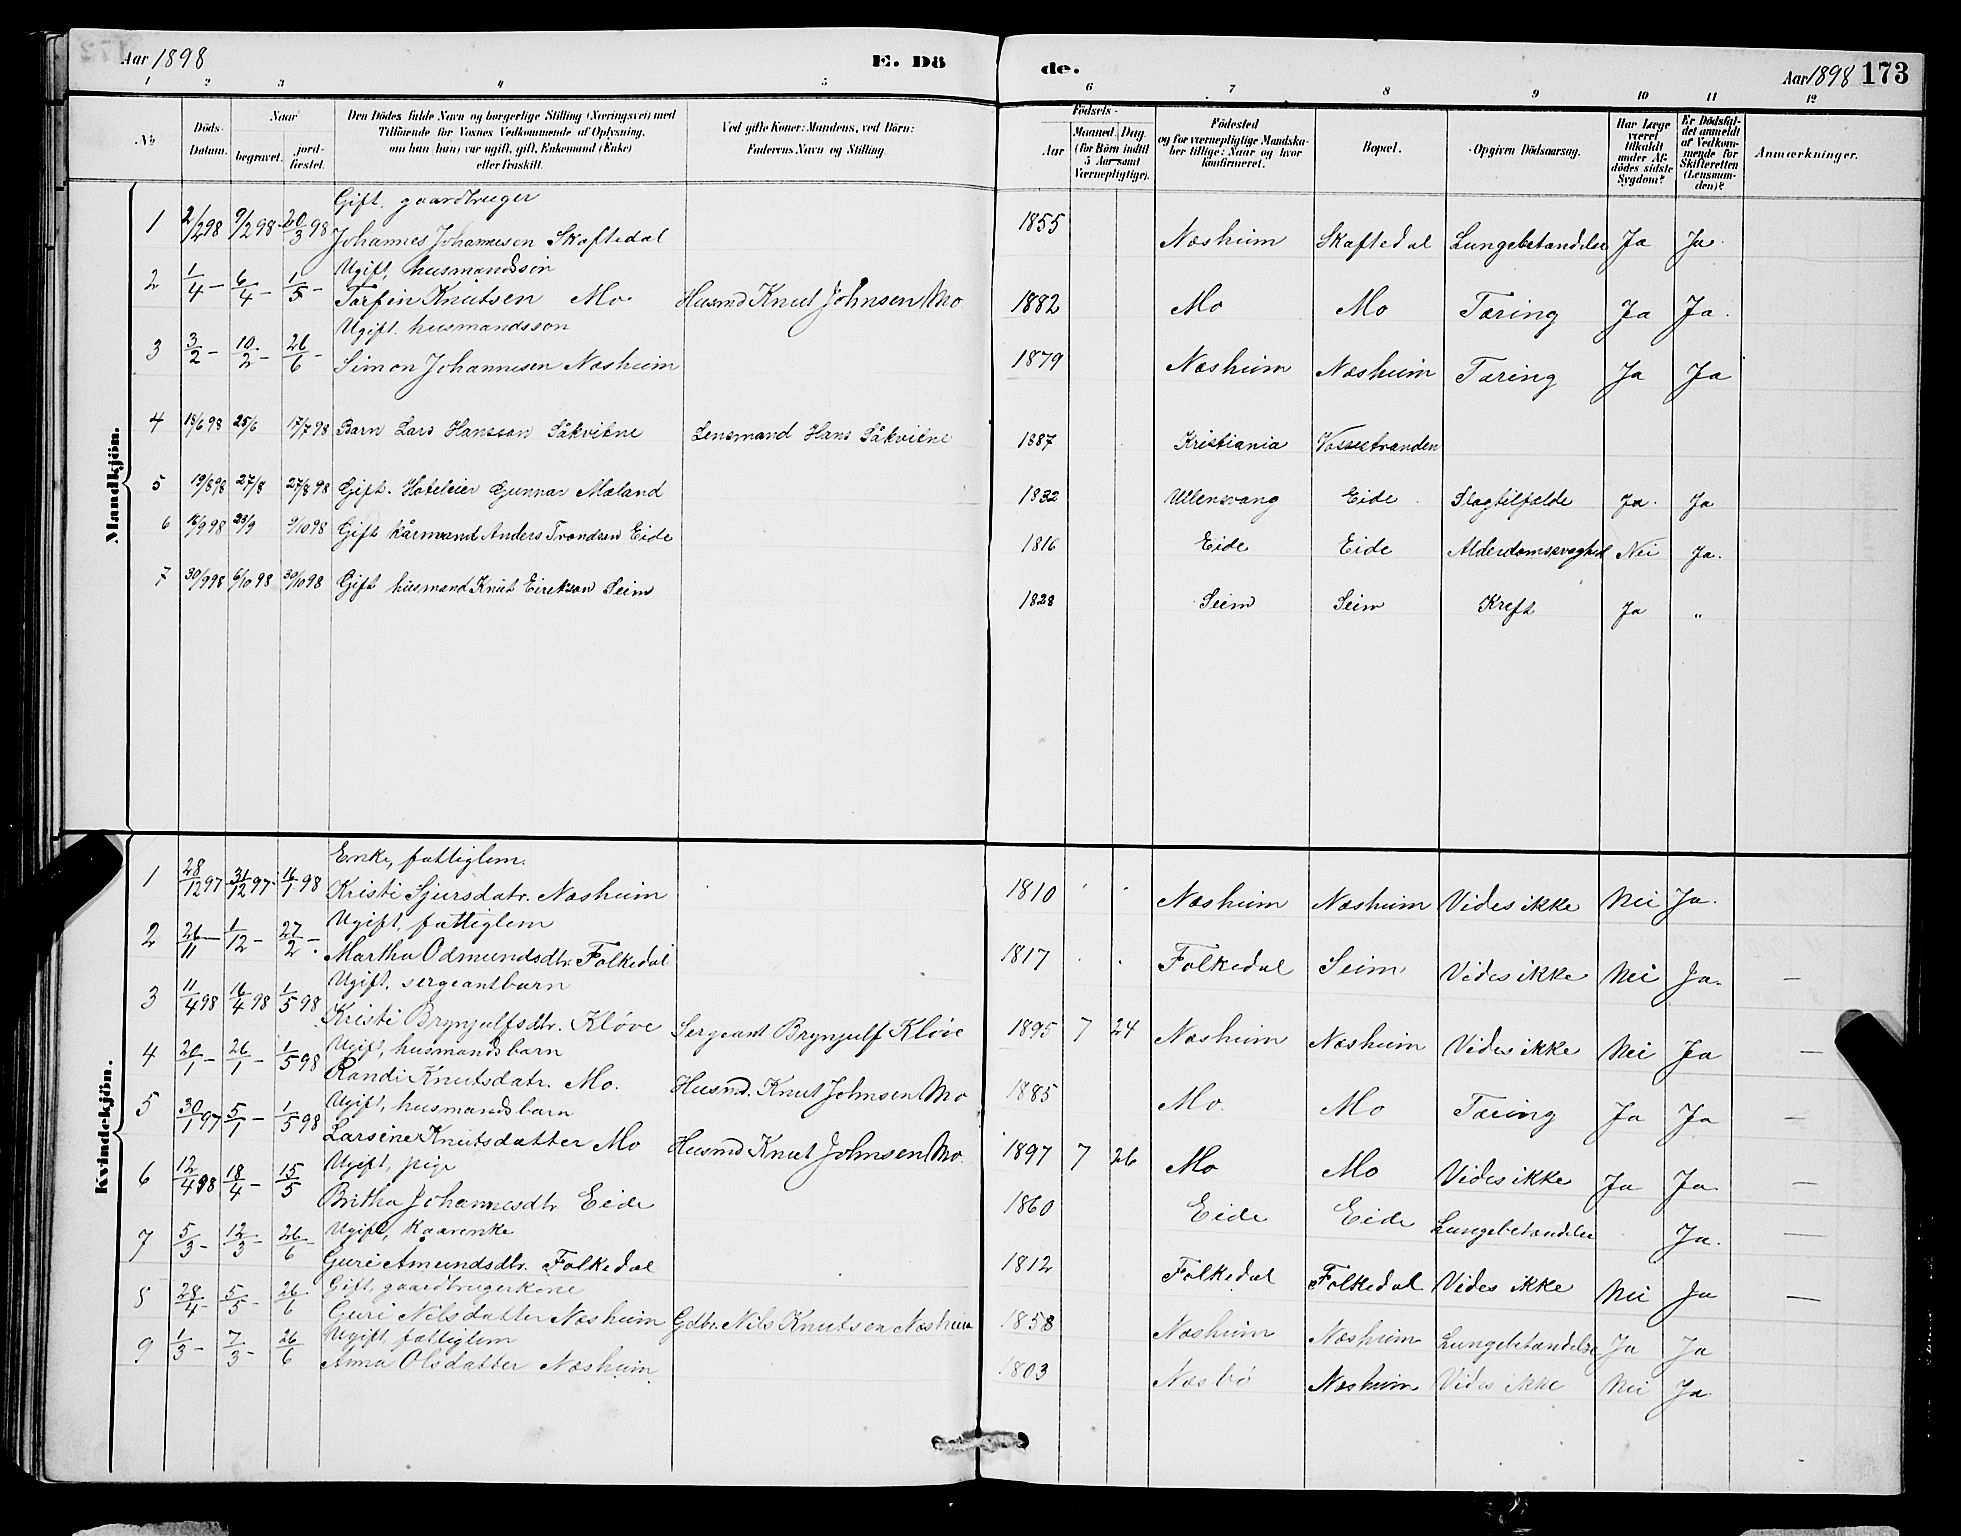 Aar 1898 E. Dö de. Aar 1898 173
1 2 3 4 5 6 7 8 9 10 11 12
No. Döds-Datum. Naar begravet. jordfæstet. Den Dödes fulde Navn og borgerlige Stilling (Næringsvei) med Tilföiende for Voxnes Vedkommende af Oplysning, om han (hun) var ugift, gift, Enkemand (Enke) eller fraskilt. Ved gifte Koner: Mandens, ved Börn: Faderens Navn og Stilling. Födsels- Aar Maaned. Dag. (for Börn indtil 5 Aar samt Værnepligtige). Födested og for værnepligtige Mandskaber tillige: Naar og hvor konfirmeret. Bopæl. Opgiven Dödsaarsag. Har Læge været tilkaldt under Afdödes sidste Sygdom? Er Dödsfaldet anmeldt af Vedkommende for Skifteretten (Lensmanden)? Anmærkninger.
Mandkjön.
Gift, gaardbruger
1 2/2 98 9/2 98 20/3 98 Johannes Johannesen Skaftedal 1855 Næsheim Skaftedal Lungebetændelse Ja Ja.
Ugift, husmandssøn
2 1/4 – 6/4 – 1/5 – Torfin Knutsen Mo Husmd Knut Johnsen Mo 1882 Mo Mo Tæring Ja Ja.
Ugift. husmandssøn
3 3/2 – 10/2 – 26/6 – Simon Johannesen Næsheim 1879 Næsheim Næsheim Tæring Ja Ja
4 18/6 98 25/6 17/7 98 Barn Lars Hansson Såkvitne Lensmand Hans Såkvitne 1887 Kristiania Vossestranden
5 19/8 98 27/8 27/8 98 Gift. Hoteleier Gunnar Mæland 1832 Ullensvang Eide Slagtilfælde Ja. Ja
6 16/9 98 23/9 9/10 98 Gift kårmand Anders Trondsen Eide 1816 Eide Eide Alderdomssvaghed Nei Ja.
7 30/9 98 6/10 98 30/10 98 Gift husmand Knut Eirekson Seim 1828 Seim Seim Kreft Ja "
Kvindekjön.
Enke, fattiglem.
1 28/12 97 31/12 97 16/1 98 Kristi Sjursdatr. Næsheim 1810 Næsheim Næsheim Vides ikke Nei Ja.
Ugift, fattiglem
2 26/11 – 1/12 – 27/2 –. Martha Odmundsdtr. Folkedal 1817 Folkedal Seim Vides ikke Nei Ja. –
Ugift, sergeantbarn
3 11/4 98 16/4 98 1/5 98 Kristi Brynjulfsdtr. Kløve Sergeant Brynjulf Kløve 1895 7 24 Næsheim Næsheim Vides ikke Nei Ja –
Ugift, husmandsbarn
4 20/1 – 26/1 – 1/5 98 Randi Knutsdatr. Mo. Husmd. Knut Johnsen Mo 1885 Mo. Mo Tæring Ja Ja –
Ugift, husmandsbarn
5 30/1 97 5/1 – 1/5 98 Larsine Knutsdatter Mo Husmd Knut Johnsen Mo. 1897 7 26 Mo Mo Vides ikke Ja Ja –
Ugift, pige
6 12/4 98 18/4 – 15/5 Britha Johannesdtr Eide 1860 Eide Eide Lungebetændelse Ja. –
Ugift, kaarenke
7 5/3 – 12/3 – 26/6 Guri Amundsdtr. Folkedal 1812 Folkedal Folkedal Vides ikke Nei Ja –
Gift, gaardbrugerkone
8 28/4 – 5/5 – 26/6 Guri Nilsdatter Næsheim Gdbr. Nils Knutsen Næsheim 1858 Næsheim Næsheim Lungebetændelse Ja Ja
Ugift, fattiglem
9 1/3 – 7/3 – 26/6 Anna Olsdatter Næsheim. 1803 Næsbø Næsheim Vides ikke Nei Ja